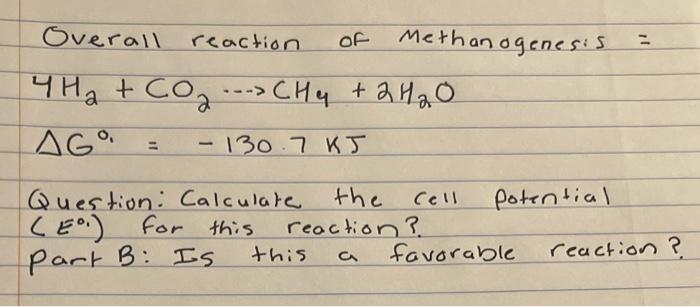 Overall reaction of Methanogenesis =
4H₂ + CO₂ ---> CH₄ + 2H₂O
ΔG°' = -130.7 KJ
Question: Calculate the cell potential
(E°') for this reaction?
part B: Is this a favorable reaction?